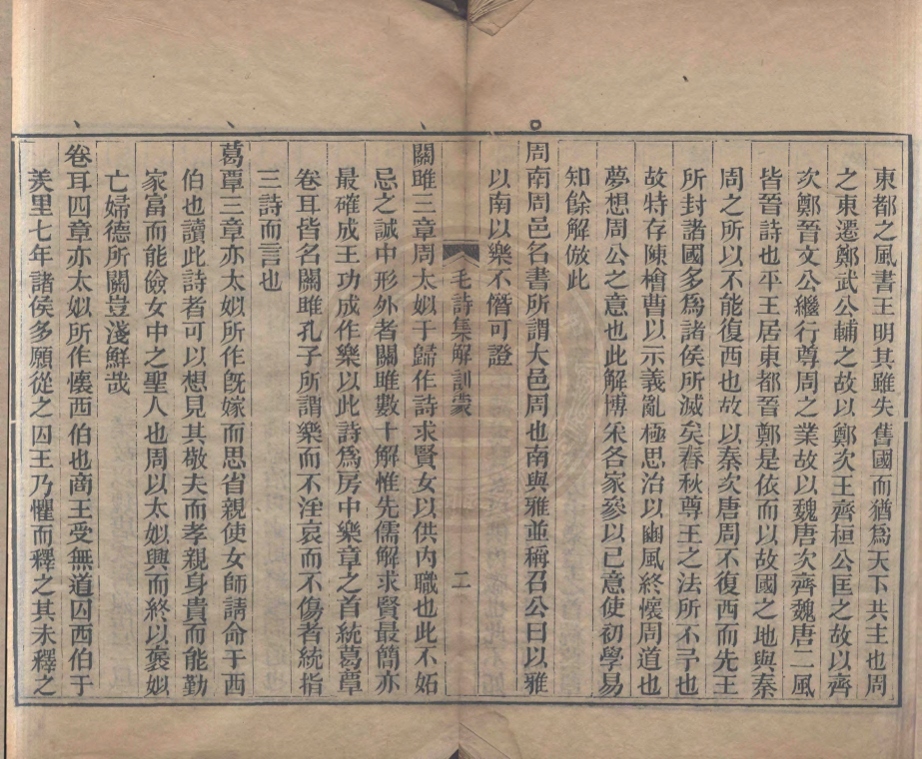 東都之風書王明其雖失舊國而猶爲天下共主也周
之東遷鄭武公輔之故以鄭次王齊桓公匡之故以齊
次鄭晉文公繼行尊周之業故以魏唐次齊魏唐二風
皆晉詩也平王居東都晉鄭是依而以故國之地與秦
周之所以不能復西也故以秦次唐周不復西而先王
所封諸國多爲諸侯所滅矣春秋尊王之法所不予也
故特存陳檜曹以示義亂極思治以豳風終懷周道也
夢想周公之意也此解博采各家參以己意使初學易
知餘解倣此
周南周邑名書所謂大邑周也南與雅並稱召公曰以雅
以南以樂不僭可證
毛詩集解訓蒙 二
關雎三章周太姒于歸作詩求賢女以供內職也此不妬
忌之誠中形外者關雎數十解惟先儒解求賢最簡亦
最確成王功成作樂以此詩爲房中樂章之首統葛覃
卷耳皆名關雎孔子所謂樂而不淫哀而不傷者統指
三詩而言也
葛覃三章亦太姒所作旣嫁而思省親使女師請命于西
伯也讀此詩者可以想見其敬夫而孝親身貴而能勤
家富而能儉女中之聖人也周以太姒興而終以褒姒
亡婦德所關豈淺鮮哉
卷耳四章亦太姒所作懷西伯也商王受無道囚西伯于
羑里七年諸侯多願從之囚王乃懼而釋之其未釋之